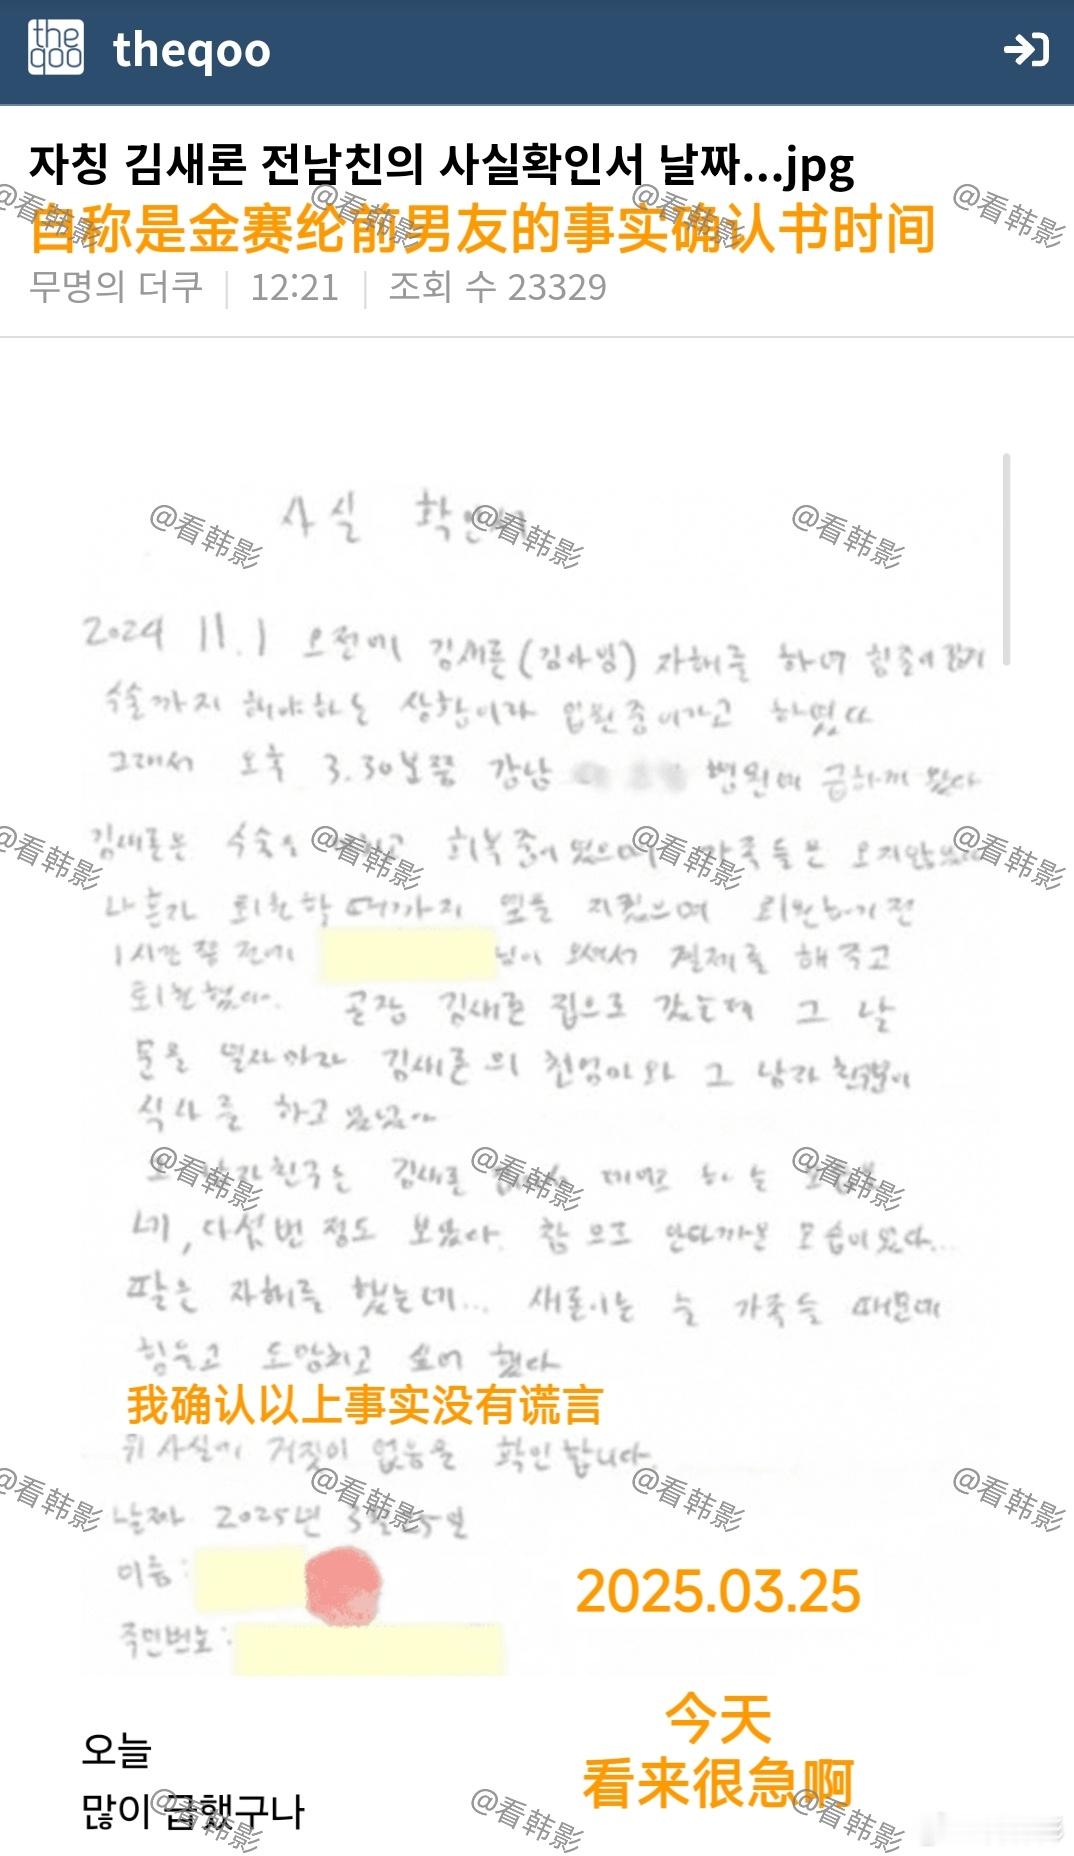 the
qoo
theqoo
자칭 김새론 전남친의 사실확인서 날짜...jpg
自称是金赛纶前男友的事实确认书时间
무명의 더쿠 | 12:21 | 조회 수 23329
사실 확인서
2024 11.1 오전에 김새론(김아빙) 자해를 하여 힘줄이
수술까지 해야하는 상황이라 입원중이라고 하였다
그래서 오후 3.30분쯤 강남 병원에 급하게 갔다
김새론은 수술을 회복중에 있으며 가족들은 오지않았다
나 혼자 퇴원할때까지 옆을 지켰으며 퇴원하기 전
1시간 쯤 전에 님이 오셔서 결제를 해주고
퇴원했다. 곧장 김새론 집으로 갔는데 그 날
문을 열자마자 김새론의 친엄마와 그 남자친구분이
식사를 하고 있었다
그 남자친구는 김새론
네, 다섯번 정도 보았다. 참으로 안타까운 모습이었다...
팔은 자해를 했는데... 새론이는 늘 가족들 때문에
힘들고 도망치고 싶어 했다
我确认以上事实没有谎言
위 사실에 거짓이 없음을 확인합니다.
날짜 2025년 3월 25일
이름:
2025.03.25
주민번호:
今天
오늘
看来很急啊
많이 급했구나
@看韩影